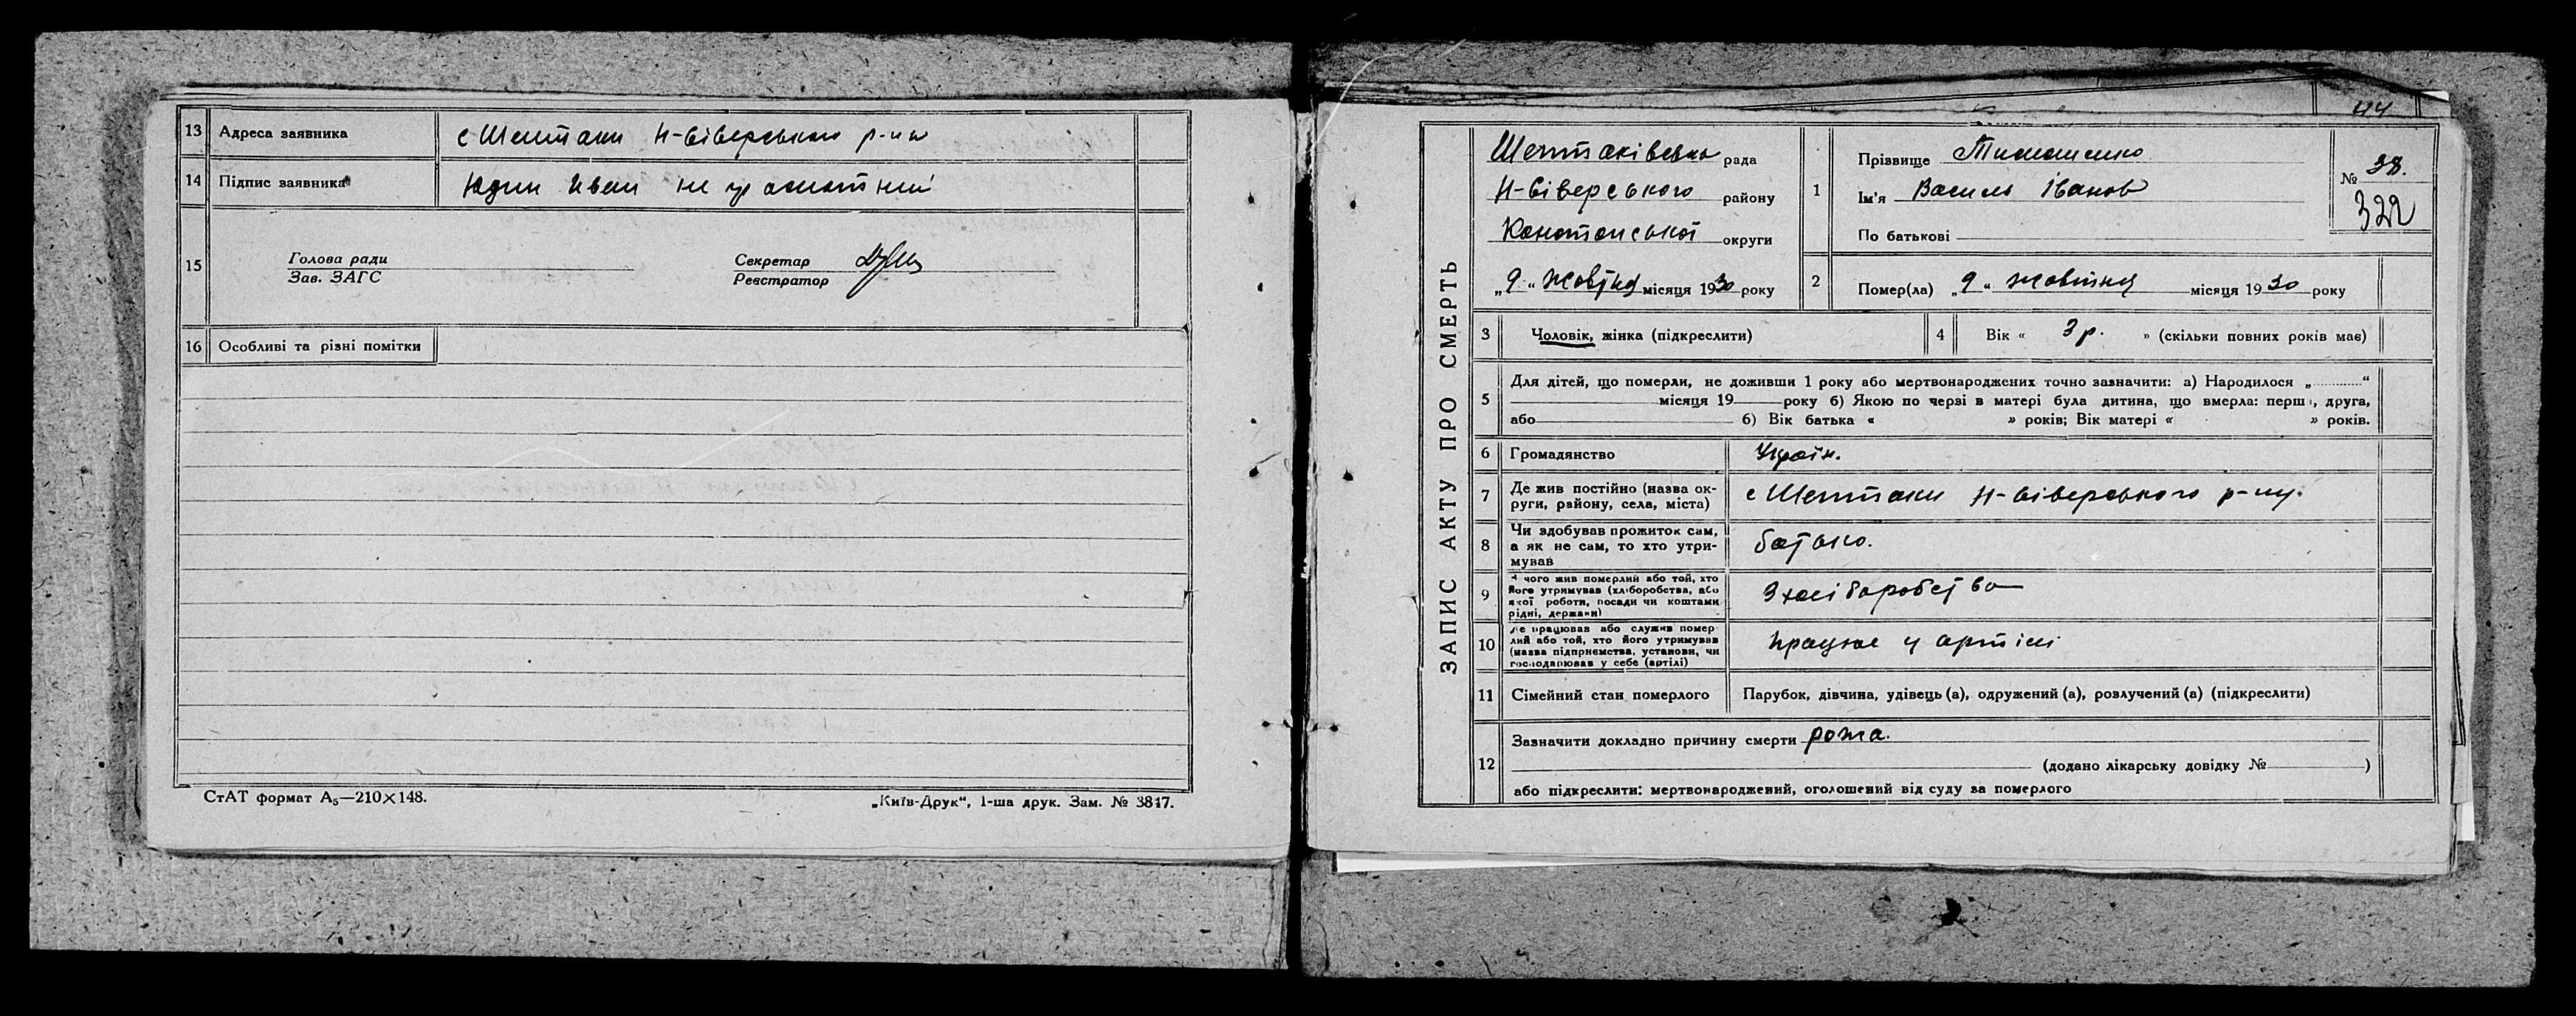 13 Адреса заявника с Шептаки Н-Сіверського р-ну
14 Підпис заявника Юдин Иван не грамотний
15 Голова ради
Зав. ЗАГС
Секретар
Реєстратор
16 Особливі та різні помітки
СтАТ формат А5—210×148.
„Київ-Друк“, 1-ша друк. Зам. № 3817.
44
ЗАПИС АКТУ ПРО СМЕРТЬ
Шептаківська рада
Н-Сіверського району
Конотопської округи
„9“ жовтня місяця 1930 року
1 Прізвище Тимошенко
Ім'я Василь Іванов
По батькові
№ 38.
322
2 Помер(ла) „9“ жовтня місяця 1930 року
3 Чоловік, жінка (підкреслити)
4 Вік « 3 р. » (скільки повних років має)
5 Для дітей, що померли, не доживши 1 року або мертвонароджених точно зазначити: а) Народилося „ “
місяця 19 року б) Якою по черзі в матері була дитина, що вмерла: перша, друга,
або б) Вік батька « » років; Вік матері « » років.
6 Громадянство Україн.
7 Де жив постійно (назва ок-
руги, району, села, міста) с Шептаки Н-Сіверського р-ну.
8 Чи здобував прожиток сам,
а як не сам, то хто утри-
мував батько.
9 З чого жив померлий або той, хто
його утримував (хліборобства, або
якої роботи, посади чи коштами
рідні, держави) З хліборобства
10 Де працював або служив помер
лий або той, хто його утримував
(назва підприємства, установи, чи
господарював у себе (артілі) працює у артілі
11 Сімейний стан померлого Парубок, дівчина, удівець (а), одружений (а), розлучений (а) (підкреслити)
12 Зазначити докладно причину смерти рожа.
(додано лікарську довідку № )
або підкреслити: мертвонароджений, оголошений від суду за померлого